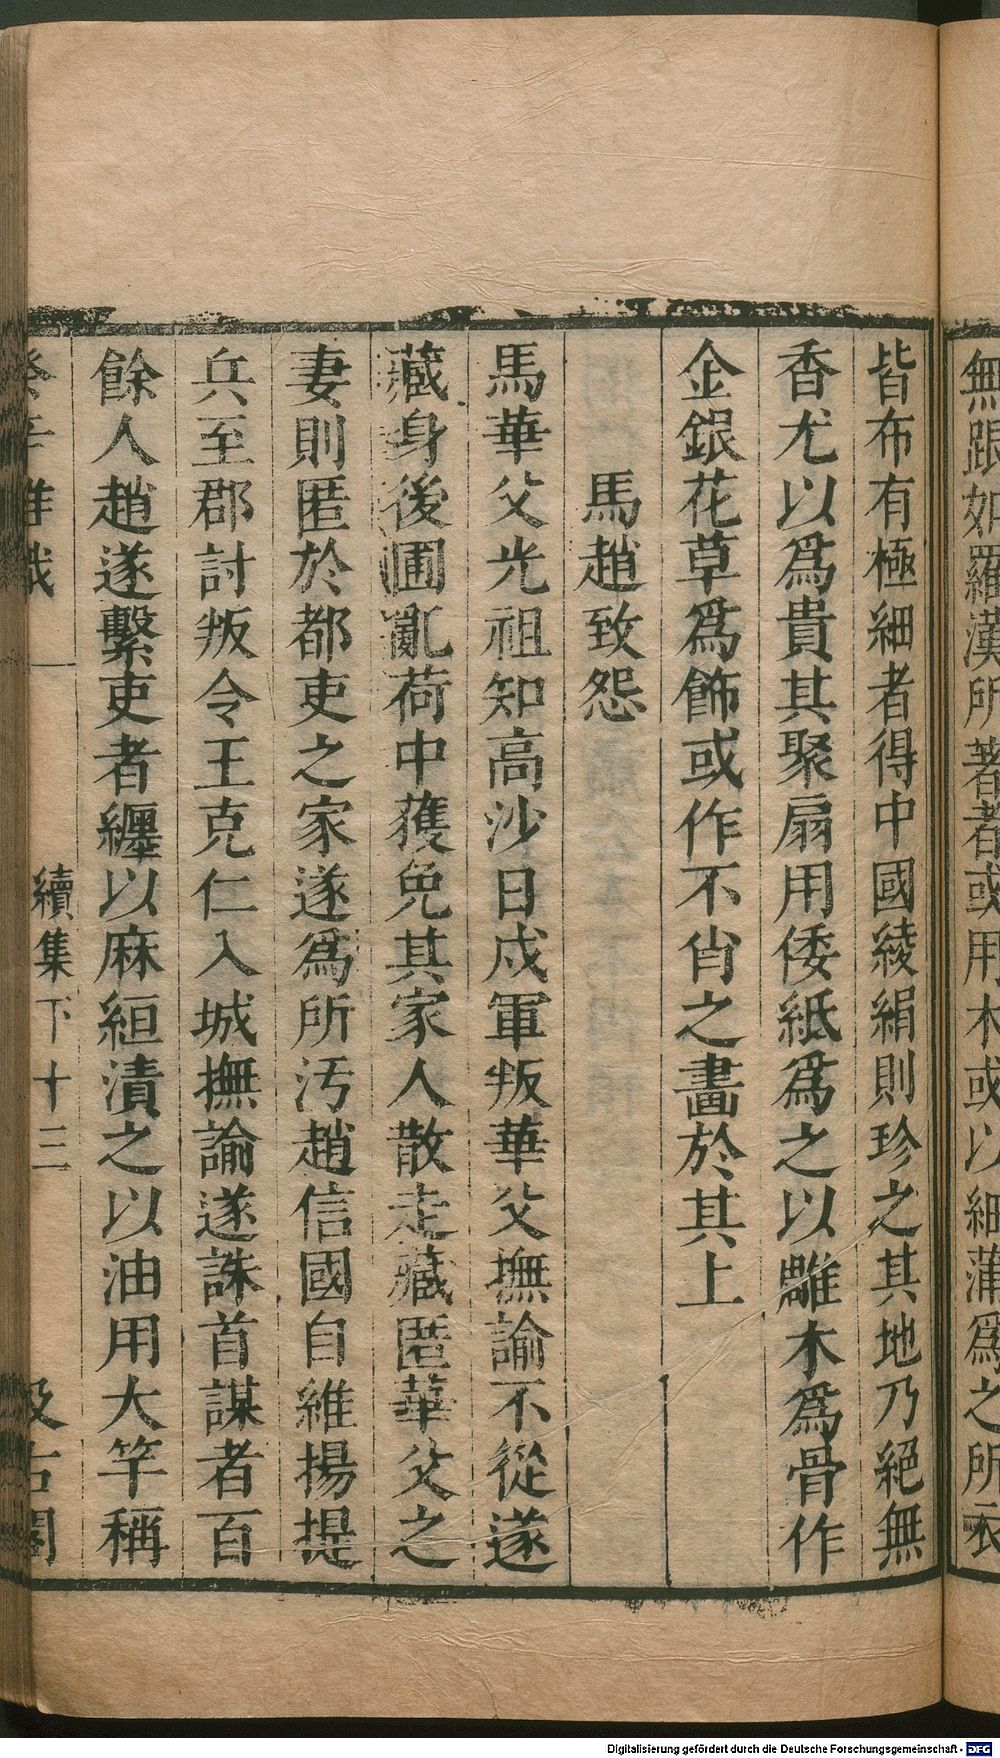 無跟如羅漢所著者或用木或以細蒲爲之所衣
皆布有極細者得中國綾絹則珍之其地乃絕無
香尤以爲貴其聚扇用倭紙爲之以雕木爲骨作
金銀花草爲飾或作不肖之畫於其上
馬趙致怨
馬華父光祖知高沙日戍軍叛華父撫諭不從遂
藏身後圃亂荷中獲免其家人散走藏匿華父之
妻則匿於都吏之家遂爲所汚趙信國自維揚提
兵至郡討叛令王克仁入城撫諭遂誅首謀者百
餘人趙遂繫吏者纏以麻絙漬之以油用大竿稱
癸辛雜識 續集下 十三 汲古閣
Digitalisierung gefördert durch die Deutsche Forschungsgemeinschaft - DFG